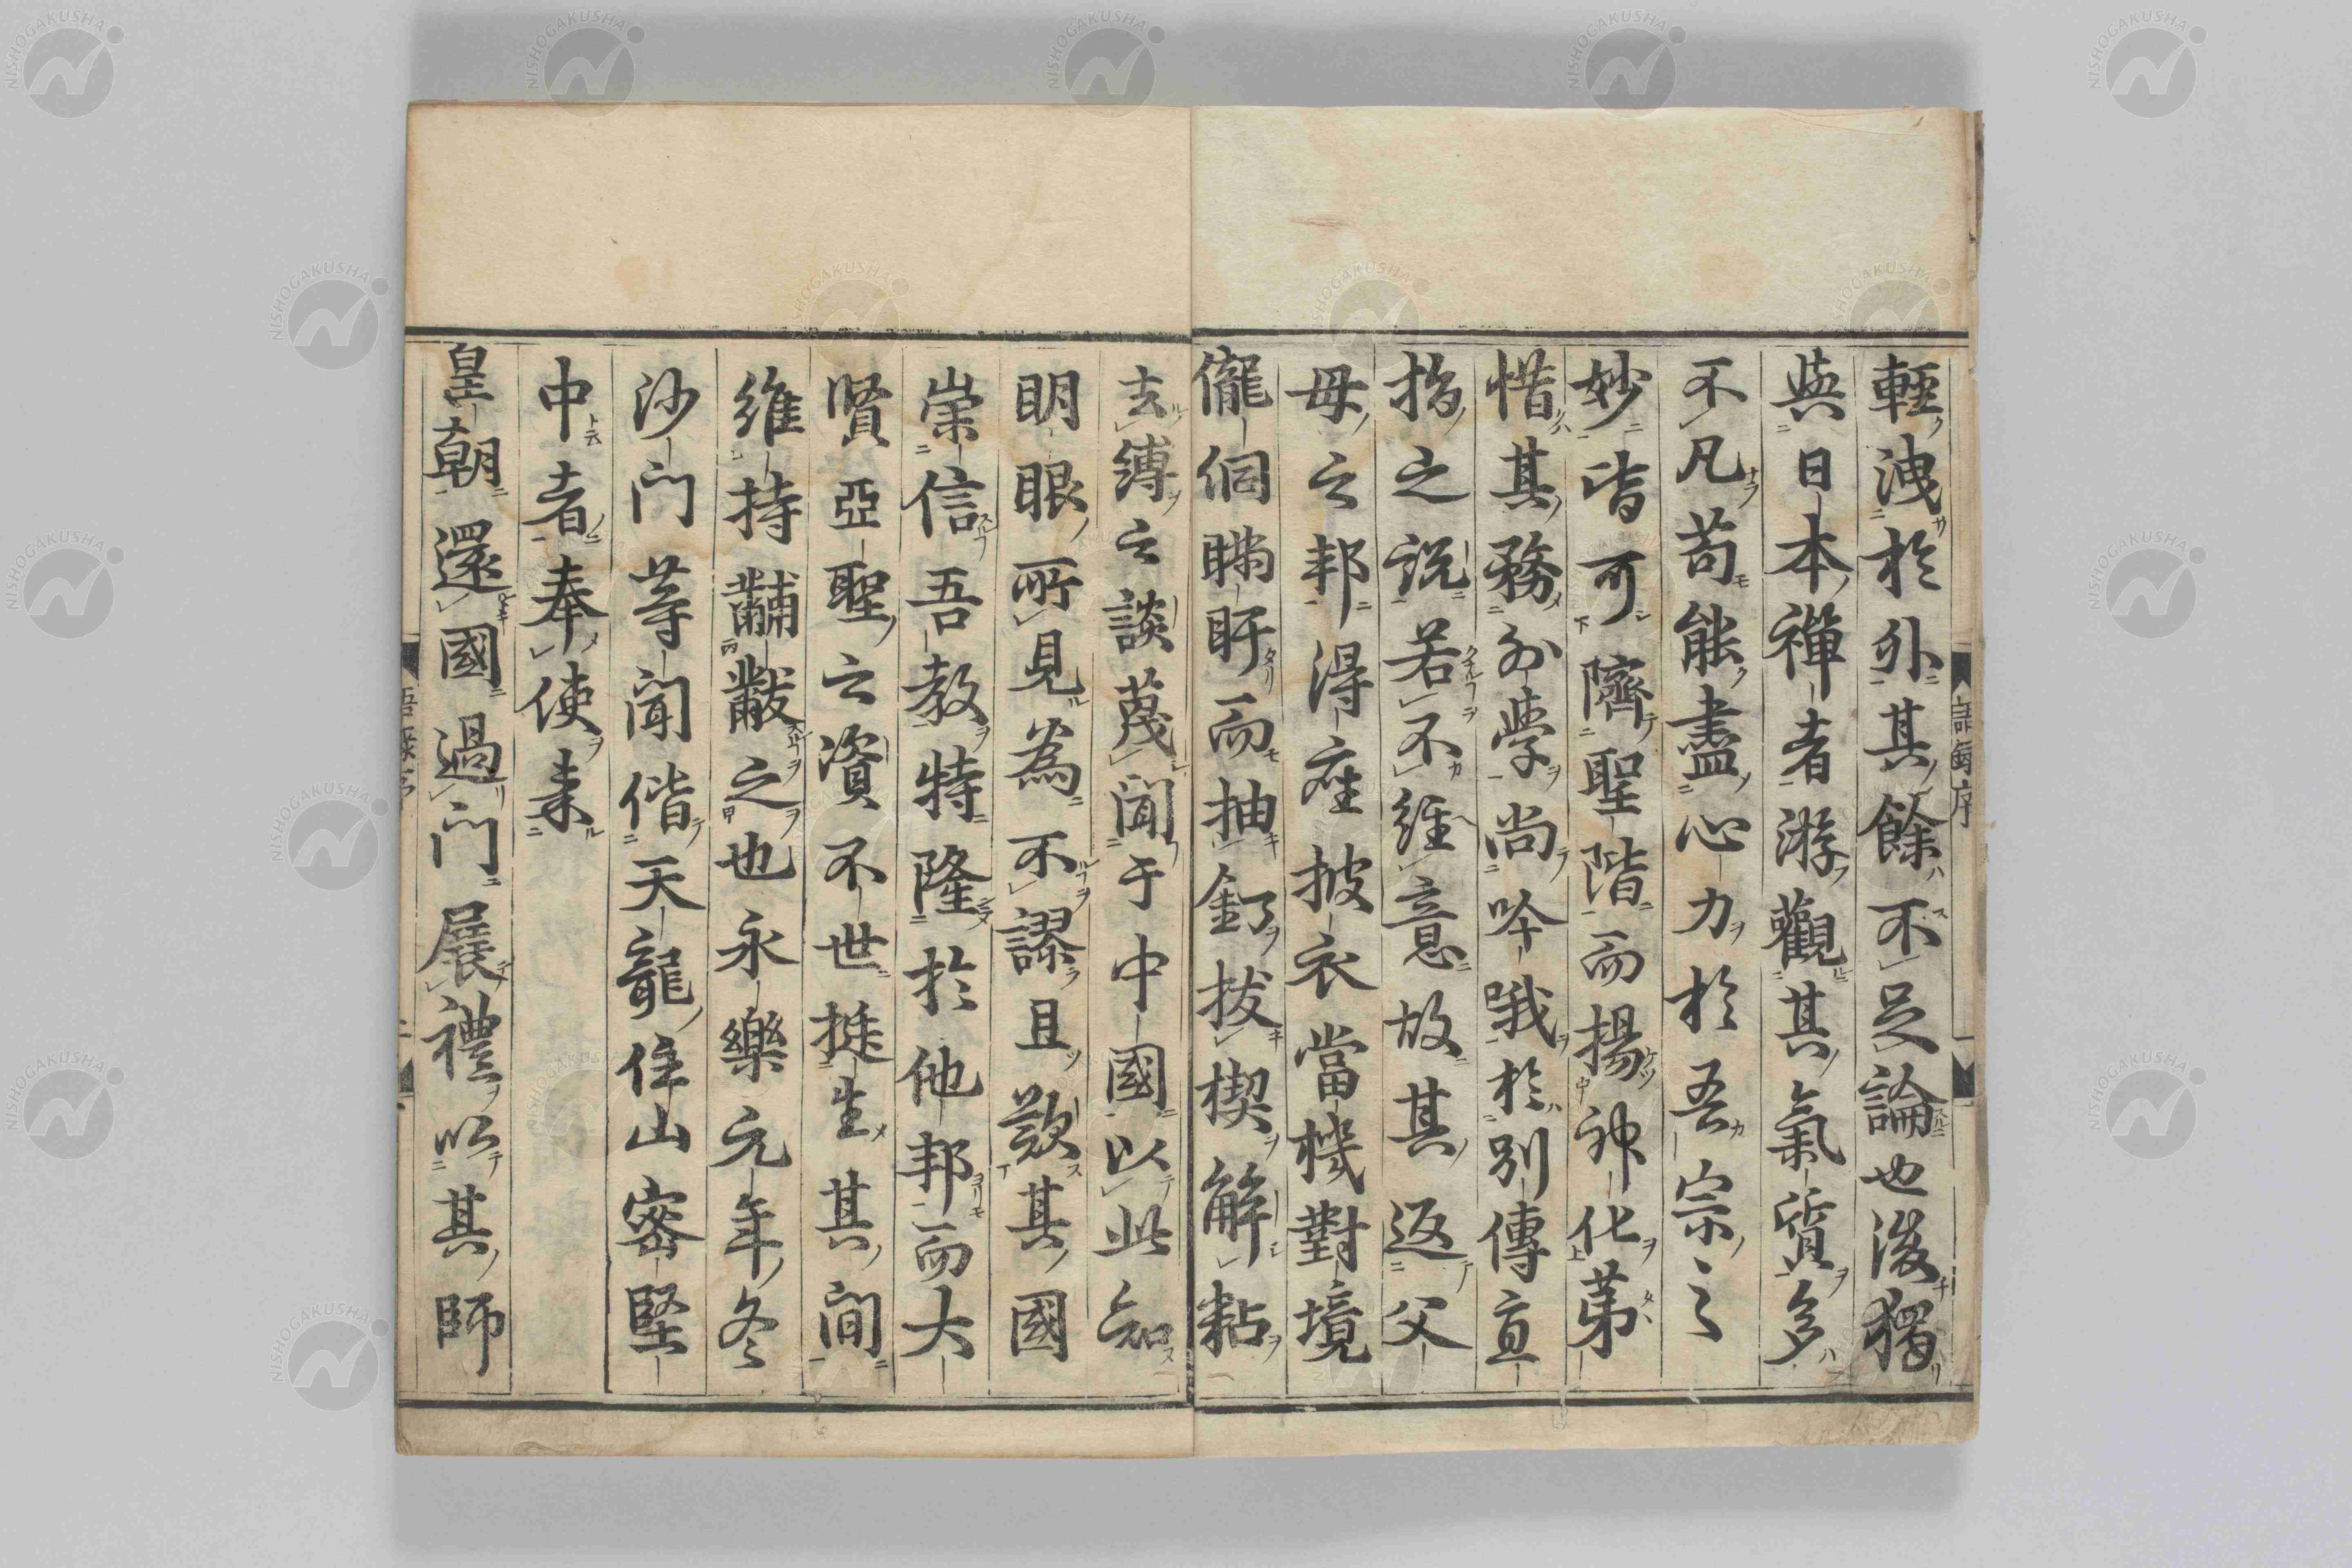 輕洩於外其餘不足論也後獨
與日本禪者游觀其氣質多
不凡苟能盡心力於吾宗之
妙皆可隮聖階而揚神化苐
惜其務外學尚吟哦於別傳直
指之說若不經意故其返父
母之邦得座披衣當機對境
儱侗瞞盰而抽釘拔楔解粘
去縛之談蔑聞于中國以此知
明眼所見為不謬且歎其國
崇信吾教特隆於他邦而大
賢亞聖之資不世挺生其間
維持黼黻之也永樂元年冬
沙門等聞偕天龍住山密堅
中者奉使來
皇朝還國過門展禮以其師
語錄序
一
語錄序
二
NISHOGAKUSHA